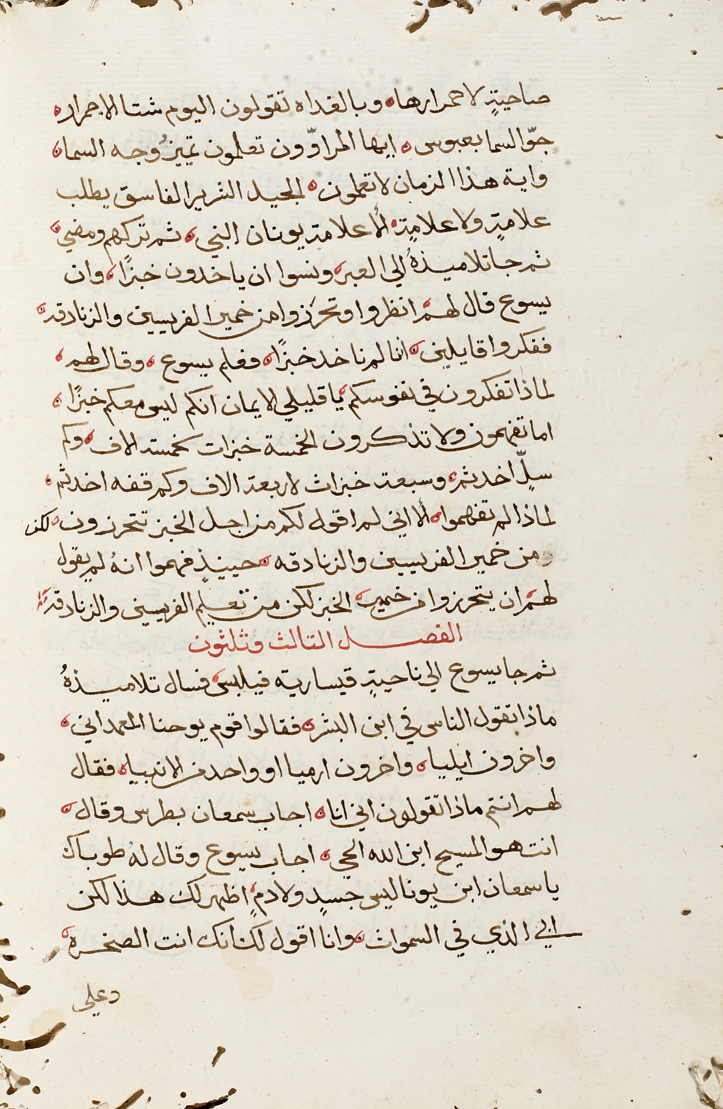 صاحية لاحمرارها وبالغداه تقولون اليوم شتا لاحمرار
جوّ السما بعبوس ايها المراوون تعلمون تميز وجه السما
واية هذا الزمان لاتعلمون الجيل الشرير الفاسق يطلب
علامةٍ ولا علامةٍ الّا علامة يونان النبي ثم تركهم ومضي
ثم جا تلاميذهُ الي العبر ونسوا ان ياخدون خبزًا وان
يسوع قال لهم انظروا وتحرزوا من خمير الفريسين والزنادقه
ففكروا قايلين اننا لم ناخد خبزًا فعلم يسوع وقال لهم
لماذا تفكرون في نفوسكم يا قليلي الايمان انكم ليس معكم خبزًا
اما تفهمون ولا تذكرون الخمسة خبزات لخمسة الاف وكم
سلٍّ اخدتم وسبعة خبزات لاربعة الاف وكم قفه اخدتم
لماذا لم تفهموا الا اني لم اقول لكم من اجل الخبز تتحرزون لكن
ومن خمير الفريسين والزنادقه حينيذٍ فهموا انهُ لم يقول
لهم ان يتحرزوا من خمير الخبز لكن من تعليم الفريسين والزنادقة
الفصل التالت وثلثون
ثم جا يسوع الي ناحيةٍ قيسارية فيلبس فسال تلاميذهُ
ماذا تقول الناس في ابن البشر فقالوا قوم يوحنا المعمداني
واخرون ايليا واخرون ارميا او واحد من الانبيا فقال
لهم انتم ماذا تقولون اني انا اجاب سمعان بطرس وقال
انت هو المسيح ابن الله الحي اجاب يسوع وقال لهُ طوباك
يا سمعان ابن يونا ليس جسدٍ ولا دمٍ اظهر لك هذا لكن
ابي الذي في السموات وانا اقول لك انك انت الصخرة
وعلي